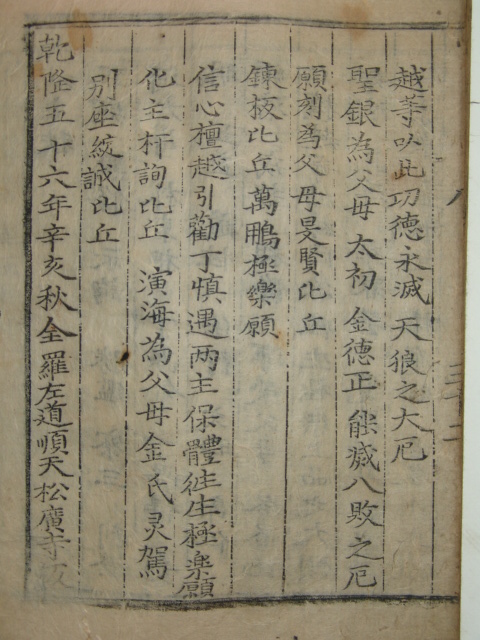 越等以此功德永滅 天狼之大厄
聖銀為父母 太初 金德正 能滅八敗之厄
願刻為父母旻賢比丘
鍊板比丘萬鵬極樂願
信心檀越引勸丁愼遇兩主保體徃生極樂願
化主杆詢比丘 演海為父母金氏灵駕
別座絞誠比丘
乾隆五十六年辛亥秋全羅左道順天松廣寺